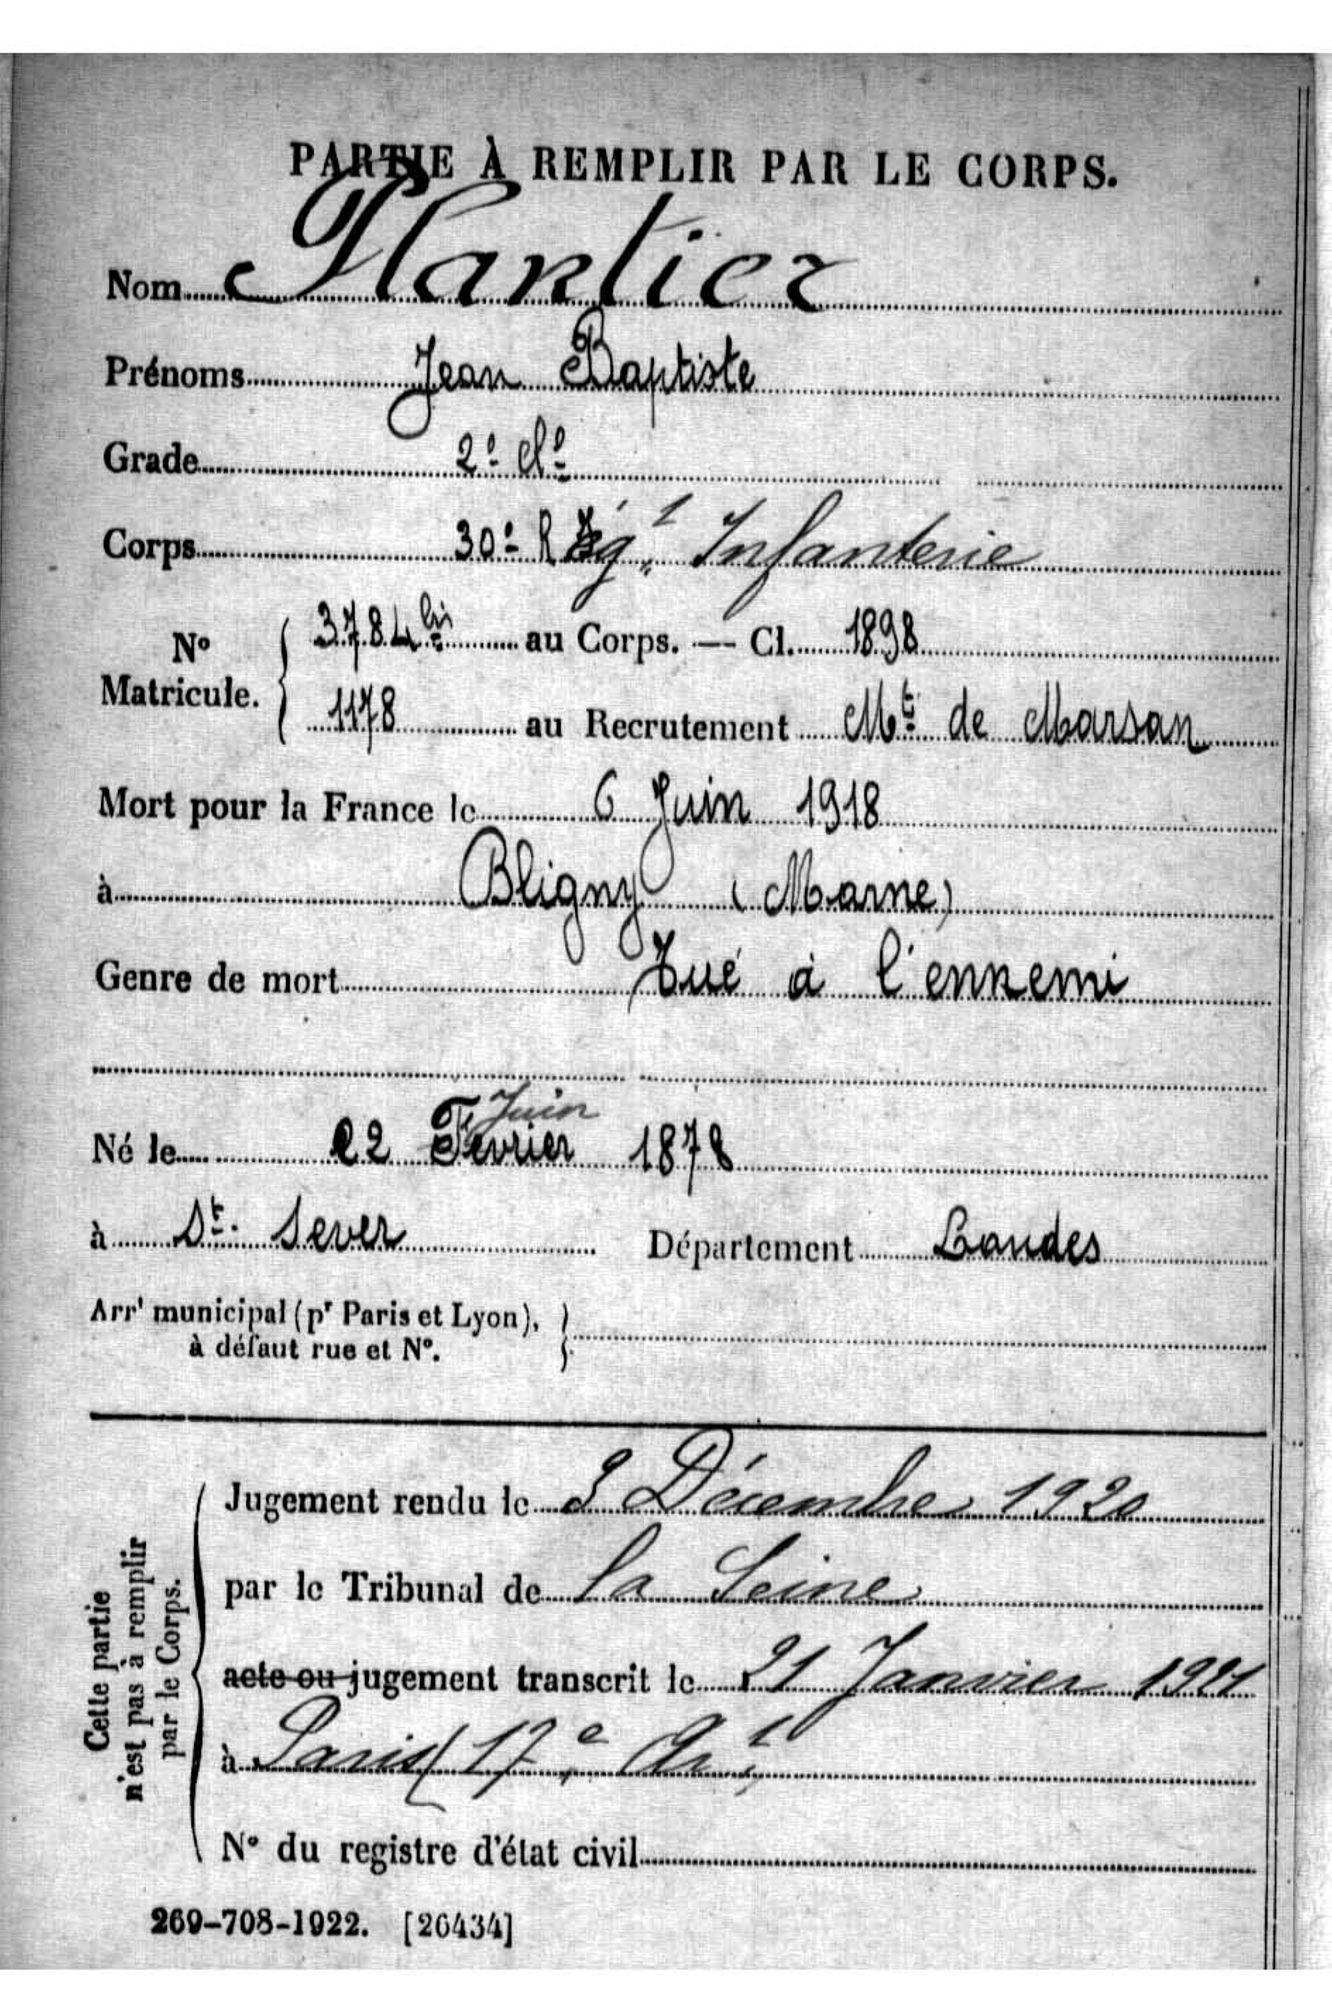 PARTIE À REMPLIR PAR LE CORPS.
Nom Plantier
Prénoms Jean Baptiste
Grade 2e Cle
Corps 30e Régt Infanterie
No Matricule. 3784 bis au Corps. — Cl. 1898
1178 au Recrutement Mt de Marsan
Mort pour la France le 6 Juin 1918
à Bligny (Marne)
Genre de mort Tué à l'ennemi
Juin
Né le 22 Fevrier 1878
à St. Sever Département Landes
Arrt municipal (pr Paris et Lyon),
à défaut rue et No.
Cette partie
n'est pas à remplir
par le Corps.
Jugement rendu le 3 Décembre 1920
par le Tribunal de la Seine
acte ou jugement transcrit le 21 Janvier 1921
à Paris (17e Art
No du registre d'état civil
269-708-1922. [26434]